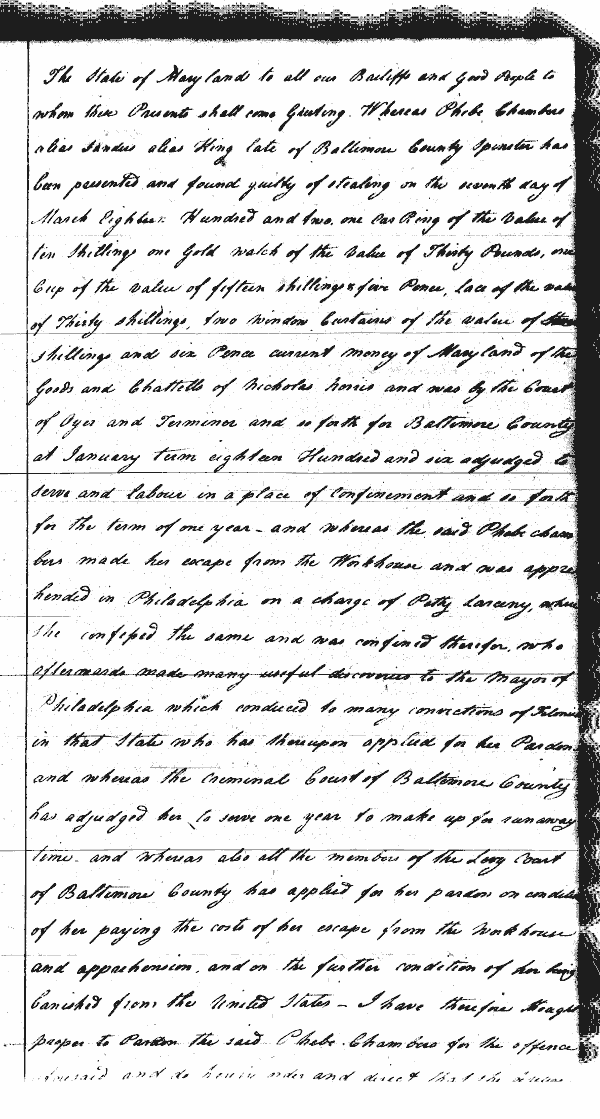 The State of Maryland to all our Bailiffs and Good People to
whom these Presents shall come Greeting. Whereas Phebe Chambers
alias Sanders alias King late of Baltimore County Spinster has
been presented and found guilty of stealing on the seventh day of
March Eighteen Hundred and two. one Ear Ring of the Value of
ten Shillings one Gold watch of the Value of Thirty Pounds, one
Cup of the value of fifteen shillings & five Pence, lace of the value
of Thirty shillings, two window Curtains of the value of
shillings and six Pence current money of Maryland of the
Goods and Chattells of Nicholas Norris and was by the Court
of Oyer and Terminer and so forth for Baltimore County
at January term eighteen Hundred and six adjudged to
serve and labour in a place of confinement and so forth
for the term of one year - and whereas the said Phebe cham
bers made her escape from the Workhouse and was appre
hended in Philadelphia on a charge of Petty Larceny, where
she confessed the same and was confined therefor, who
afterwards made many useful discoveries to the Mayor of
Philadelphia which conduced to many convictions of Felonies
in that State who has thereupon applied for her Pardon
and whereas the criminal Court of Baltimore County
has adjudged her to serve one year to make up for runaway
time. and whereas also all the members of the Levy Court
of Baltimore County has applied for her pardon on condition
of her paying the costs of her escape from the Workhouse
and apprehension, and on the further condition of her being
banished from the United States - I have therefore thought
proper to Pardon the said Phebe Chambers for the offence
aforesaid and do hereby order and direct that she